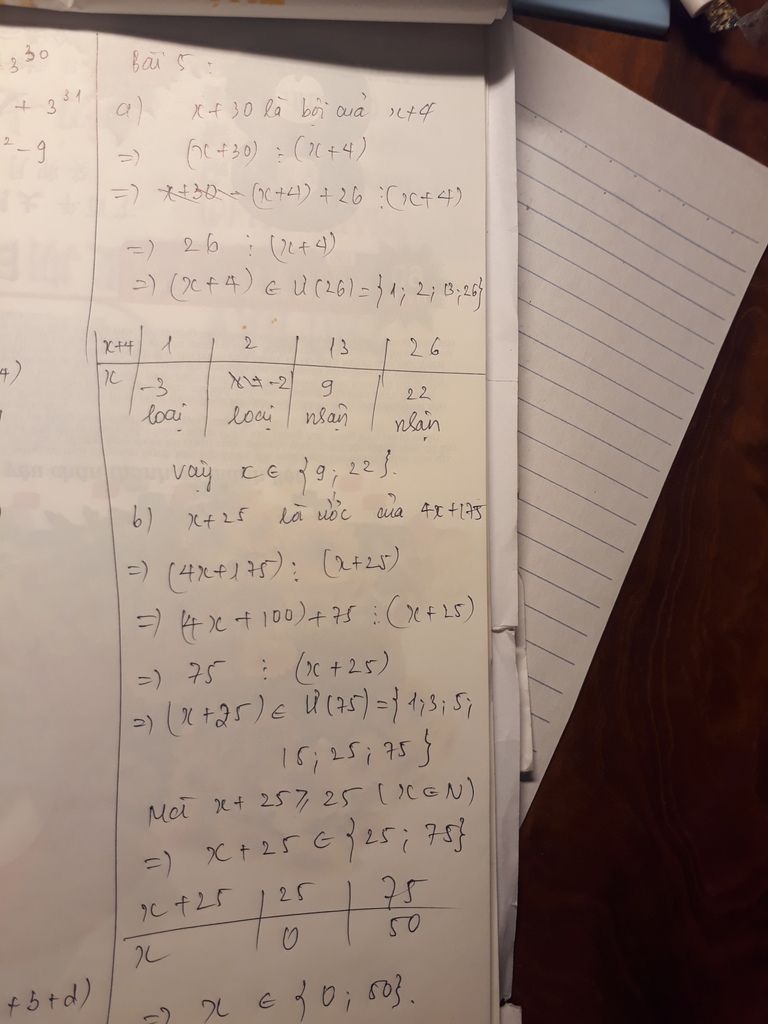 3^30
+ 3^31
² - 9
4)
+ b + d)
Bài 5 :
a) x+30 là bội của x+4
=) (x+30) ⋮ (x+4)
=) x+30 - (x+4) + 26 ⋮ (x+4)
=) 26 ⋮ (x+4)
=) (x+4) ∈ Ư(26) = {1; 2; 13; 26}
x+4 | 1 | 2 | 13 | 26
x | -3 | -2 | 9 | 22
loại | loại | nhận | nhận
Vậy x ∈ {9; 22}.
b) x+25 là ước của 4x+175
=) (4x+175) ⋮ (x+25)
=) (4x+100)+75 ⋮ (x+25)
=) 75 ⋮ (x+25)
=) (x+25) ∈ Ư(75) = {1;3; 5;
15; 25; 75}
Mà x+25 ⩾ 25 (x∈N)
=) x+25 ∈ {25; 75}
x+25 | 25 | 75
x | 0 | 50
=) x ∈ {0; 50}.